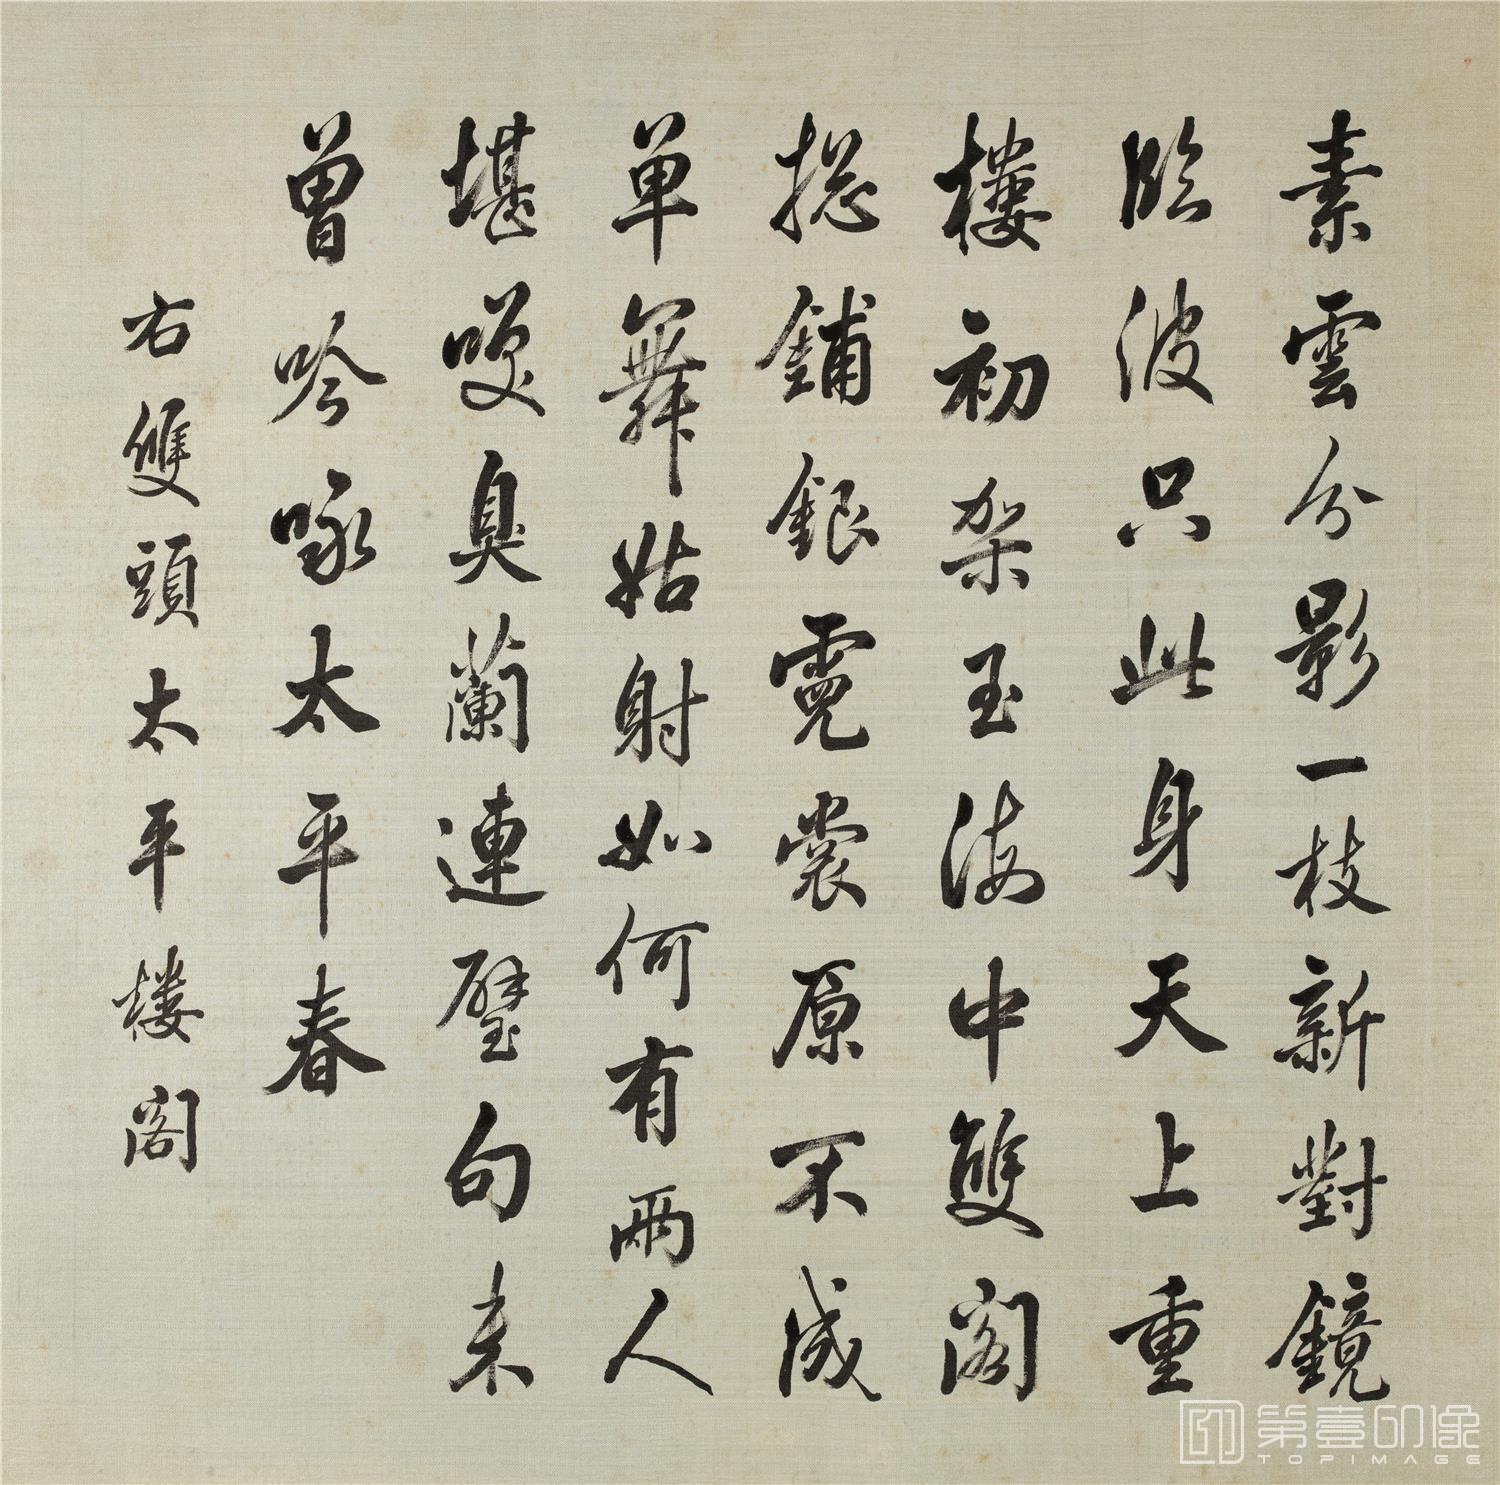 素雲分影一枝新對鏡
臨波只此身天上重
樓初架玉海中雙閣
揔鋪銀霓裳原不成
单舞姑射如何有兩人
堪嘆臭蘭連璧句未
曾吟咏太平春
右雙頭太平楼閣
第壹印像
TOPIMAGE